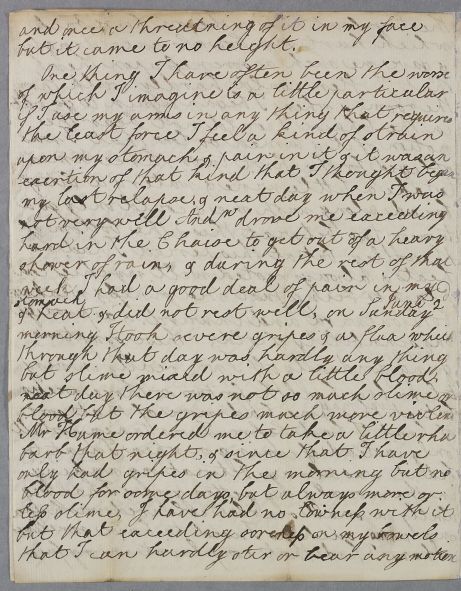 and once a threatning of it in my face
but it came to no height.
One thing I have often been the worse
of which I imagine is a little particular
if I use my arms in any thing that requires
the least force I feel a kind of strain
upon my stomach, & pain in it & it was an
exertion of that kind that I thought began
my last relapse, & next day when I was
not very well And.w drove me exceeding
hard in the Chaise to get out of a heavy
shower of rain, & during the rest of that
week I had a good deal of pain in my
stomach
& heat & did not rest well, on Sunday June 2
morning I took severe gripes & a flux which
through that day was hardly any thing
but slime mixed with a little blood,
next day there was not so much slime or
blood but the gripes much more violent
Mr Hume ordered me to take a little rhu
barb that night, & since that I have
only had gripes in the morning but no
blood for some days, but always more or
less slime, I have had no with it
but that exceeding soreness on my bowels
that I can hardly stir or bear any motion